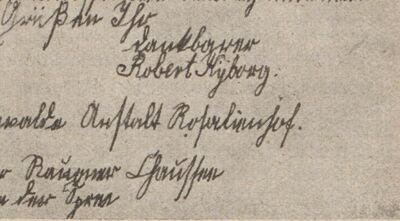 Grüßen Ihr
dankbarer
Robert Ryborg.
walde Anstalt Rosalienhof.
Raugner Chaussee
der Spree